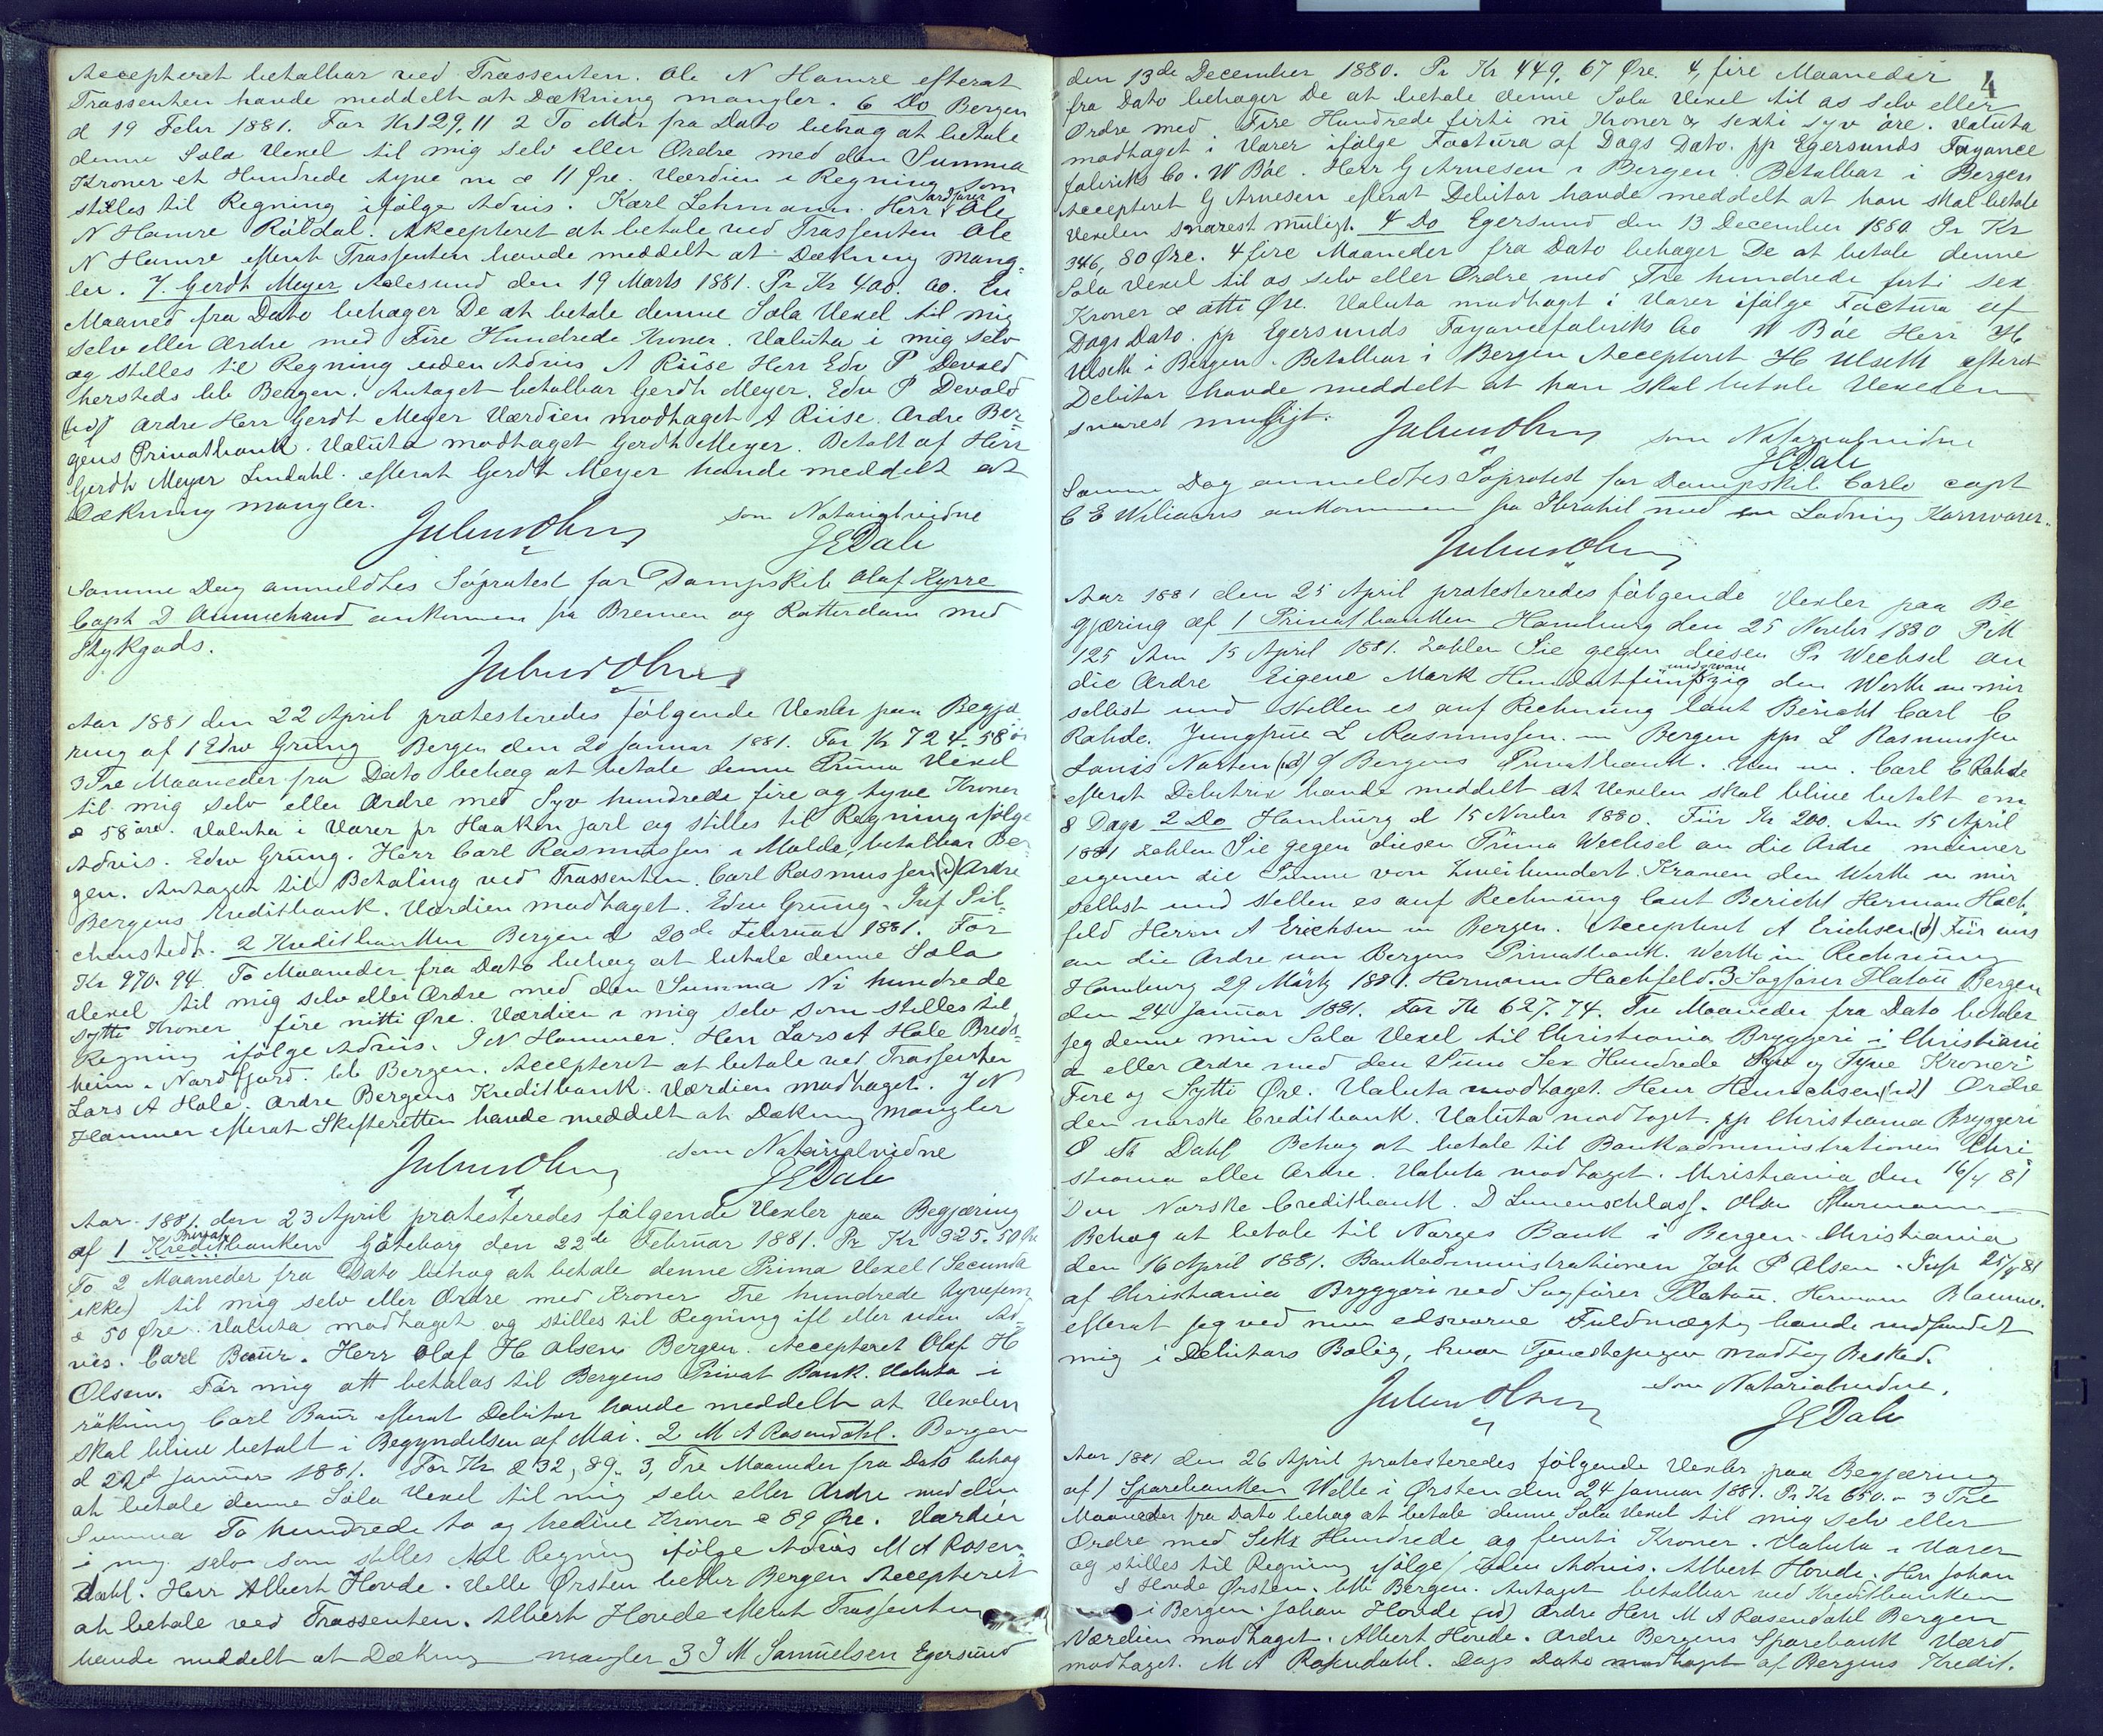 Accepteret betalbar ved Trassenten. Ole N Hamre efterat
Trassenten havde meddelt at Dækning mangler. 6 Do Bergen
d 19 Febr 1881. For Kr 129,11 2 To Mdr fra Dato behag at betale
denne Sola Vexel til mig selv eller Ordre med den Summa
Kroner et Hundrede tyve ni & 11 Øre. Værdien i Regning som
stilles til Regning ifølge Advis. Karl Lehmann. Herr Ole
N Hamre Röldal. Akcepteret at betale ved Trassenten Ole
N Hamre efterat Trassenten havde meddelt at Dækning mang-
ler. 7. Gerdt Meyer Aalesund den 19 Marts 1881. Pr Kr 400. 00. En
Maaned fra Dato behager De at betale denne Sola Vexel til mig
selv eller Ordre med Fire Hundrede Kroner. Valuta i mig selv
og stilles til Regning uden Advis A Riise Herr Edv P Devold
hersteds bb Bergen. Antaget betalbar Gerdt Meyer. Edv P Devold
(ud) Ordre Herr Gerdt Meyer Værdien modtaget A Riise. Ordre Ber-
gens Privatbank. Valuta modtaget Gerdt Meyer. Betalt af Herr
Gerdt Meyer Lindahl. efterat Gerdt Meyer havde meddelt at
Dækning mangler.
Julius Olsen som Notarialvidne
J E Dale
Samme Dag anmeldtes Söprotest for Dampskib Olaf Kyrre
Capt D ankommen fra Bremen og Rotterdam med
Stykgods.
Julius Olsen
Aar 1881 den 22 April protesteredes følgende Vexler paa Begjæ
ring af 1 Edw Grung Bergen den 20 Januar 1881. For Kr 724.58 ör
3 Tre Maaneder fra Dato behag at betale denne Prima Vexel
til mig selv eller Ordre med Syv hundrede fire og tyve Kroner
& 58 öre. Valuta i Varer pr Haakon Jarl og stilles til Regning ifølge
Advis. Edw Grung. Herr Carl Rasmussen i Molde, betalbar Ber-
gen. Antaget til Betaling ved Trassenten. Carl Rasmussen (ud) Ordre
Bergens Kreditbank. Værdien modtaget. Edw Grung. Inf Pil-
chenstedt. 2 Kreditbanken Bergen d 20de Februar 1881. For
Kr 970.94. To Maaneder fra Dato behag at betale denne Sola
Vexel til mig selv eller Ordre med den Summa Ni hundrede
sytti Kroner fire nitti Øre. Værdien i mig selv som stilles til
Regning ifølge Advis. J N Hammer. Herr Lars A Hole Breds-
heim i Nordfjord. bb Bergen. Accepteret at betale ved Trassenten
Lars A Hole. Ordre Bergens Kreditbank. Værdien modtaget. J N
Hammer efterat Skifteretten havde meddelt at Dækning mangler
Julius Olsen som Notarialvidne
J E Dale
Aar 1881 den 23 April protesteredes følgende Vexler paa Begjæring
Privat
af 1 Kreditbanken Göteborg den 22de Februar 1881. Pr Kr 325.50 Øre
To 2 Maaneder fra Dato behag at betale denne Prima Vexel (Secunda
ikke) til mig selv eller Ordre med Kroner Tre hundrede tyvefem
& 50 Øre. Valuta modtaget og stilles til Regning ifl eller uden Ad-
vis. Carl Baur. Herr Olaf H Olsen Bergen. Accepteret Olaf H
Olsen. För mig att betalas til Bergens Privat Bank. Valuta i
räkning Carl Baur efterat Debitor havde meddelt at Vexelen
skal blive betalt i Begyndelsen af Mai. 2 M A Rosendahl. Bergen
d 22d Januar 1881. For Kr 232,89. 3, Tre Maaneder fra Dato behag
at betale denne Sola Vexel til mig selv eller Ordre med den
Summa To hundrede to og tredive Kroner & 89 Øre. Værdien
i mig selv som stilles til Regning ifølge Advis M A Rosen-
dahl. Herr Albert Hovde. Velle Ørsten Bergen Accepteret
at betale ved Trassenten. Albert Hovde efterat Trassenten
havde meddelt at Dækning mangler 3 J M Samuelsen Egersund
4
den 13de December 1880. Pr Kr 449,67 Øre. 4, fire Maaneder
fra Dato behager De at betale denne Sola Vexel til os selv eller
Ordre med. Fire Hundrede förti ni Kroner & sexti syv öre. Valuta
modtaget i Varer ifølge Factura af Dags Dato. pp Egersunds Fayance
fabriks Co. W Böe. Herr G Arnesen i Bergen. Betalbar i Bergen
Accepteret G Arnesen efterat Debitor havde meddelt at han skal betale
Vexelen snarest muligt. 4 Do Egersund den 13 December 1880 Pr Kr
346, 80 Øre. 4 fire Maaneder fra Dato behager De at betale denne
Sola Vexel til os selv eller Ordre med Tre hundrede förti sex
Kroner & otti Øre. Valuta modtaget i Varer ifølge Factura af
Dags Dato. pp Egersunds Fayancefabriks Co W Böe Herr H
Ulseth i Bergen. Betalbar i Bergen Accepteret H Ulseth efterat
Debitor havde meddelt at han skal betale Vexelen
snarest muligt.
Julius Olsen som Notarialvidne
J E Dale
Samme Dag anmeldtes Söprotest for Dampskib Carlo capt
C E Wiliams ankommen fra Ibrahil med en Ladning Kornvarer.
Julius Olsen
Aar 1881 den 25 April protesteredes følgende Vexler paa Be
gjæring af 1 Privatbanken Hamburg den 25 Novbr 1880 P M
125 Am 15 April 1881. zahlen Sie gegen diesen Pr Wechsel an
die Ordre Eigene Mark Hundertfünfundzwanzig den Werth in mir
selbst und stellen es auf Rechnung laut Bericht Carl C
Rohde. Jungfrue L Rasmussen in Bergen ppr L Rasmussen
(ud) Bergens Privatbank. Carl C Rohde
efterat Debitrix havde meddelt at Vexelen skal blive betalt om
8 Dage 2 Do Hamburg d 15 Novbr 1880. Für Kr 200. Am 15 April
1881 zahlen Sie gegen diesen Prima Wechsel an die Ordre meiner
eigenen die Summe von Zweihundert Kronen den Werth in mir
selbst und stellen es auf Rechnung laut Bericht Herman Hach-
feld Herrn A Erichsen in Bergen. Accepteret A Erichsen (ud) Für uns
an die Ordre von Bergens Privatbank. Werth in Rechnung
Hamburg 29 Märtz 1881. Hermann Hachfeld. 3 Sagfører Platou Bergen
den 24 Januar 1881. For Kr 627.74. Tre Maaneder fra Dato betaler
jeg denne min Sola Vexel til Christiania Bryggeri i Christiani
a eller Ordre med den Sum Sex Hundrede Syv og Tyve Kroner
Fire og Sytti Øre. Valuta modtaget. Henr Henrichsen (ud) Ordre
den norske Creditbank. Valuta modtaget. pp Christiania Bryggeri
O Dahl Behag at betale til Bankadministrationen Chri
stiania eller Ordre. Valuta modtaget. Christiania den 16/4 81
Den Norske Creditbank. D Lumenschlass. Olsen
Behag at betale til Norges Bank i Bergen. Christiania
den 16 April 1881. Bankadministrationen Joh P Olsen. Insp 25/4 81
af Christiania Bryggeri ved Sagfører Platou. Hermann Blaauw.
efterat jeg ved min edsvorne Fuldmægtig havde indfundet
mig i Debitors Bolig, hvor Tjenestepigen modtog Besked.
Julius Olsen som Notarialvidne.
J E Dale
Aar 1881 den 26 April protesteredes følgende Vexler paa Begjæring
af 1 Sparebanken Welle i Ørsten den 24 Januar 1881. Pr Kr 650. - 3 Tre
Maaneder fra Dato behag at betale denne Sola Vexel til mig selv eller
Ordre med Sex Hundrede og femti Kroner. Valuta i Varer
og stilles til Regning ifølge/uden Advis. Albert Hovde. Herr Johan
S Hovde Ørsten. bb Bergen. Antaget betalbar ved Kreditbanken
i Bergen. Johan Hovde (ud) Ordre Herr M A Rosendahl Bergen
Værdien modtaget. Albert Hovde. Ordre Bergens Sparebank Værd
modtaget. M A Rosendahl. Dags Dato modtaget af Bergens Kredit.